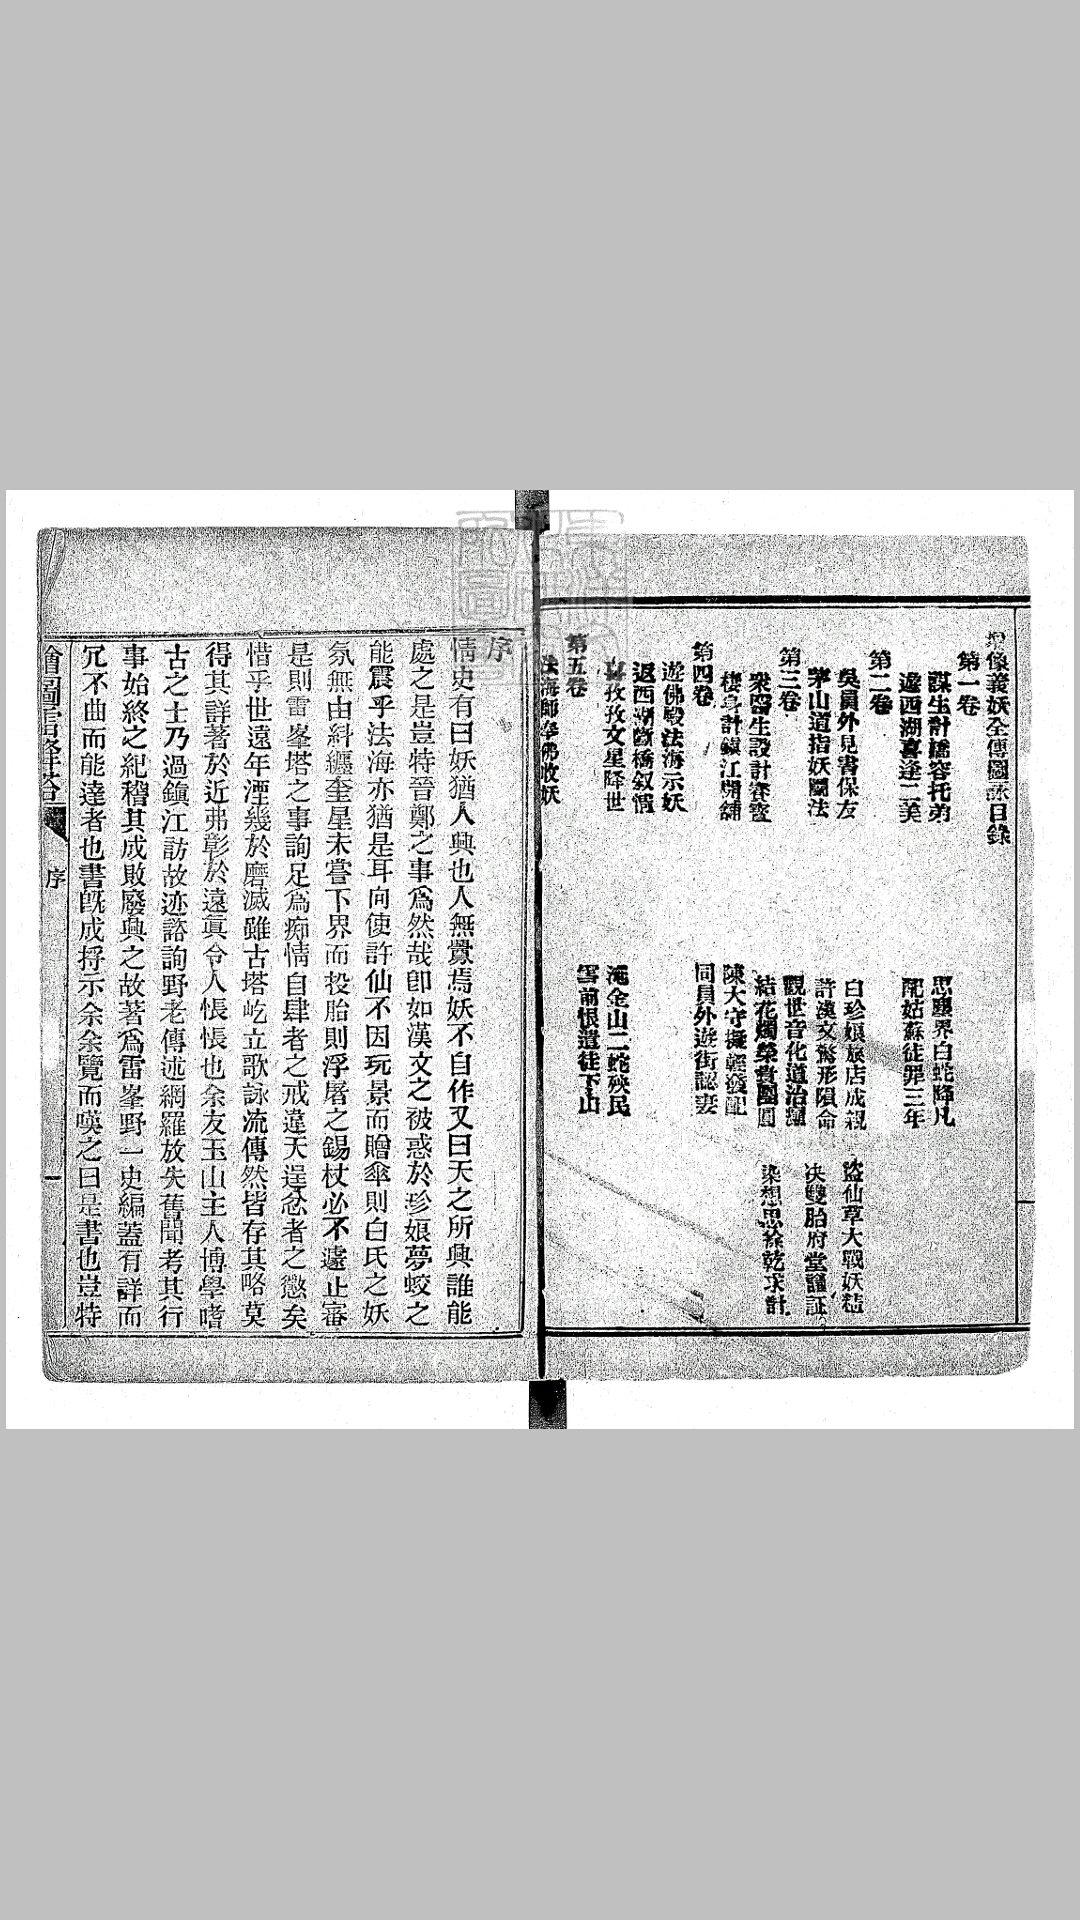 像義妖全傳圖詠目錄
第一卷
謀生計橋容托弟
思塵界白蛇降凡
遊西湖喜逢二美
配姑蘇徒罪三年
第二卷
吳員外見書保友
白珍娘旅店成親
盜仙草大戰妖精
茅山道指妖鬭法
許漢文驚形隕命
決雙胎府堂議証
第三卷
觀世音化道治
衆醫生設計賽盜
結花燭榮耆團圓
染想思徐乾求計
棲身計鎮江開舖
陳太守擬輕發配
第四卷
同員外遊街認妻
遊佛殿法海示妖
返西湖斷橋叙情
淹金山二蛇殃民
孜孜文星降世
雪前恨遣徒下山
第五卷
法海師奉佛收妖
序
情史有曰妖猶人興也人無釁焉妖不自作又曰天之所興誰能
處之是豈特晉鄭之事爲然哉卽如漢文之被惑於珍娘夢蛟之
能震乎法海亦猶是耳向使許仙不因玩景而贈傘則白氏之妖
氛無由糾纒奎星未嘗下界而投胎則浮屠之錫杖必不遽止審
是則雷峯塔之事詢足爲痴情自肆者之戒違天逞忿者之懲矣
惜乎世遠年湮幾於磨滅雖古塔屹立歌詠流傳然皆存其略莫
得其詳著於近弗彰於遠眞令人悵悵也余友玉山主人博學嗜
古之士乃過鎮江訪故迹諮詢野老傳述網羅放失舊聞考其行
事始終之紀稽其成敗廢興之故著爲雷峯野一史編蓋有詳而
冗不曲而能達者也書旣成捋示余余覽而嘆之曰是書也豈特
繪圖雷峰塔
序
一